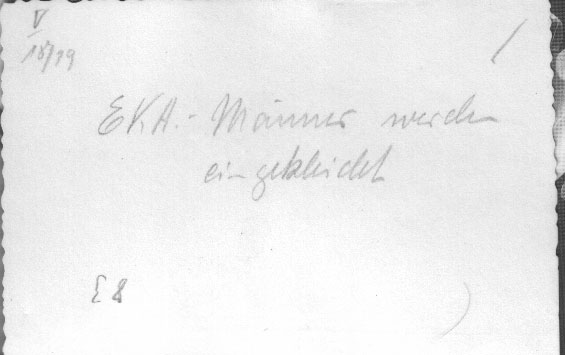 V
18/19
EKA.- Männer werden
eingekleidet
E 8